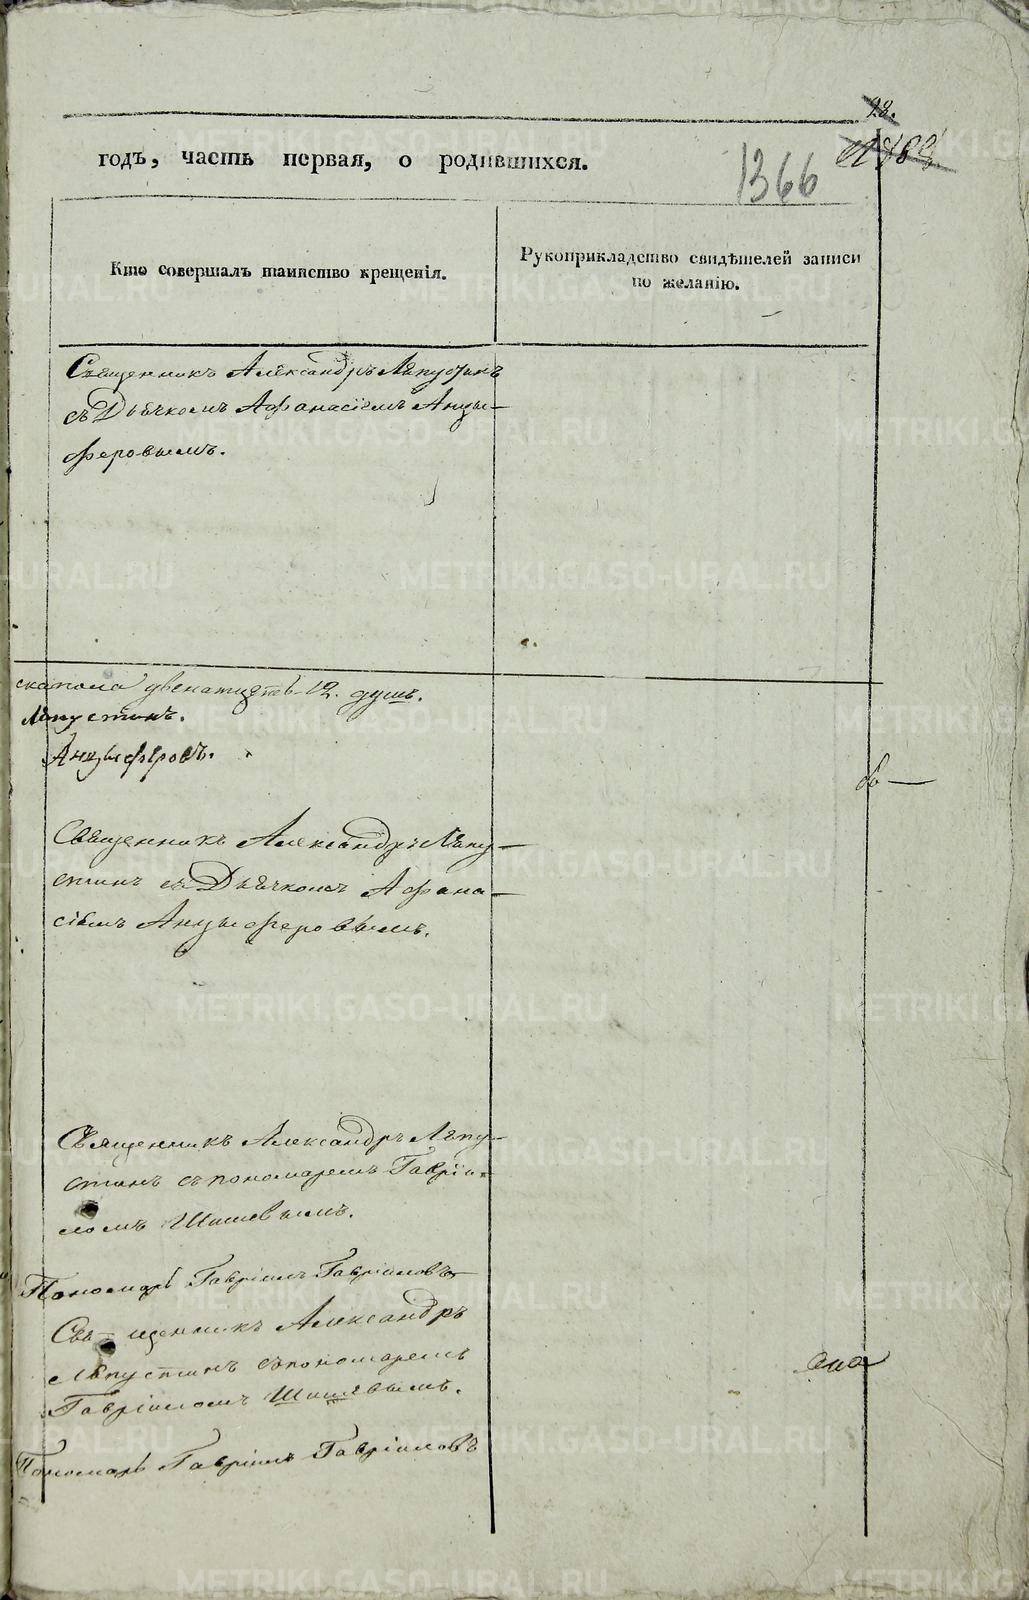 98.
годъ, часть первая, о родившихся.
1366
Кто совершалъ таинство крещенія.
Рукоприкладство свидѣтелей записи
по желанію.
Священникъ Александръ Ляпустинъ
съ Дьячкомъ Афанасіемъ Анцы-
феровымъ.
двенатцеть 12. душъ.
Ляпустинъ.
Анцыферовъ.
Священникъ Александръ Ляпу-
стинъ съ Дьячкомъ Афана-
сіемъ Анцыферовымъ.
Священникъ Александръ Ляпу-
стинъ съ пономаремъ Гавріи-
ломъ Шишевымъ.
Пономарь Гавріилъ Гавріиловъ
Священникъ Александръ
Ляпустинъ съ пономаремъ
Гавріиломъ Шишевымъ.
Пономарь Гавріилъ Гавріиловъ
METRIKI.GASO-URAL.RU